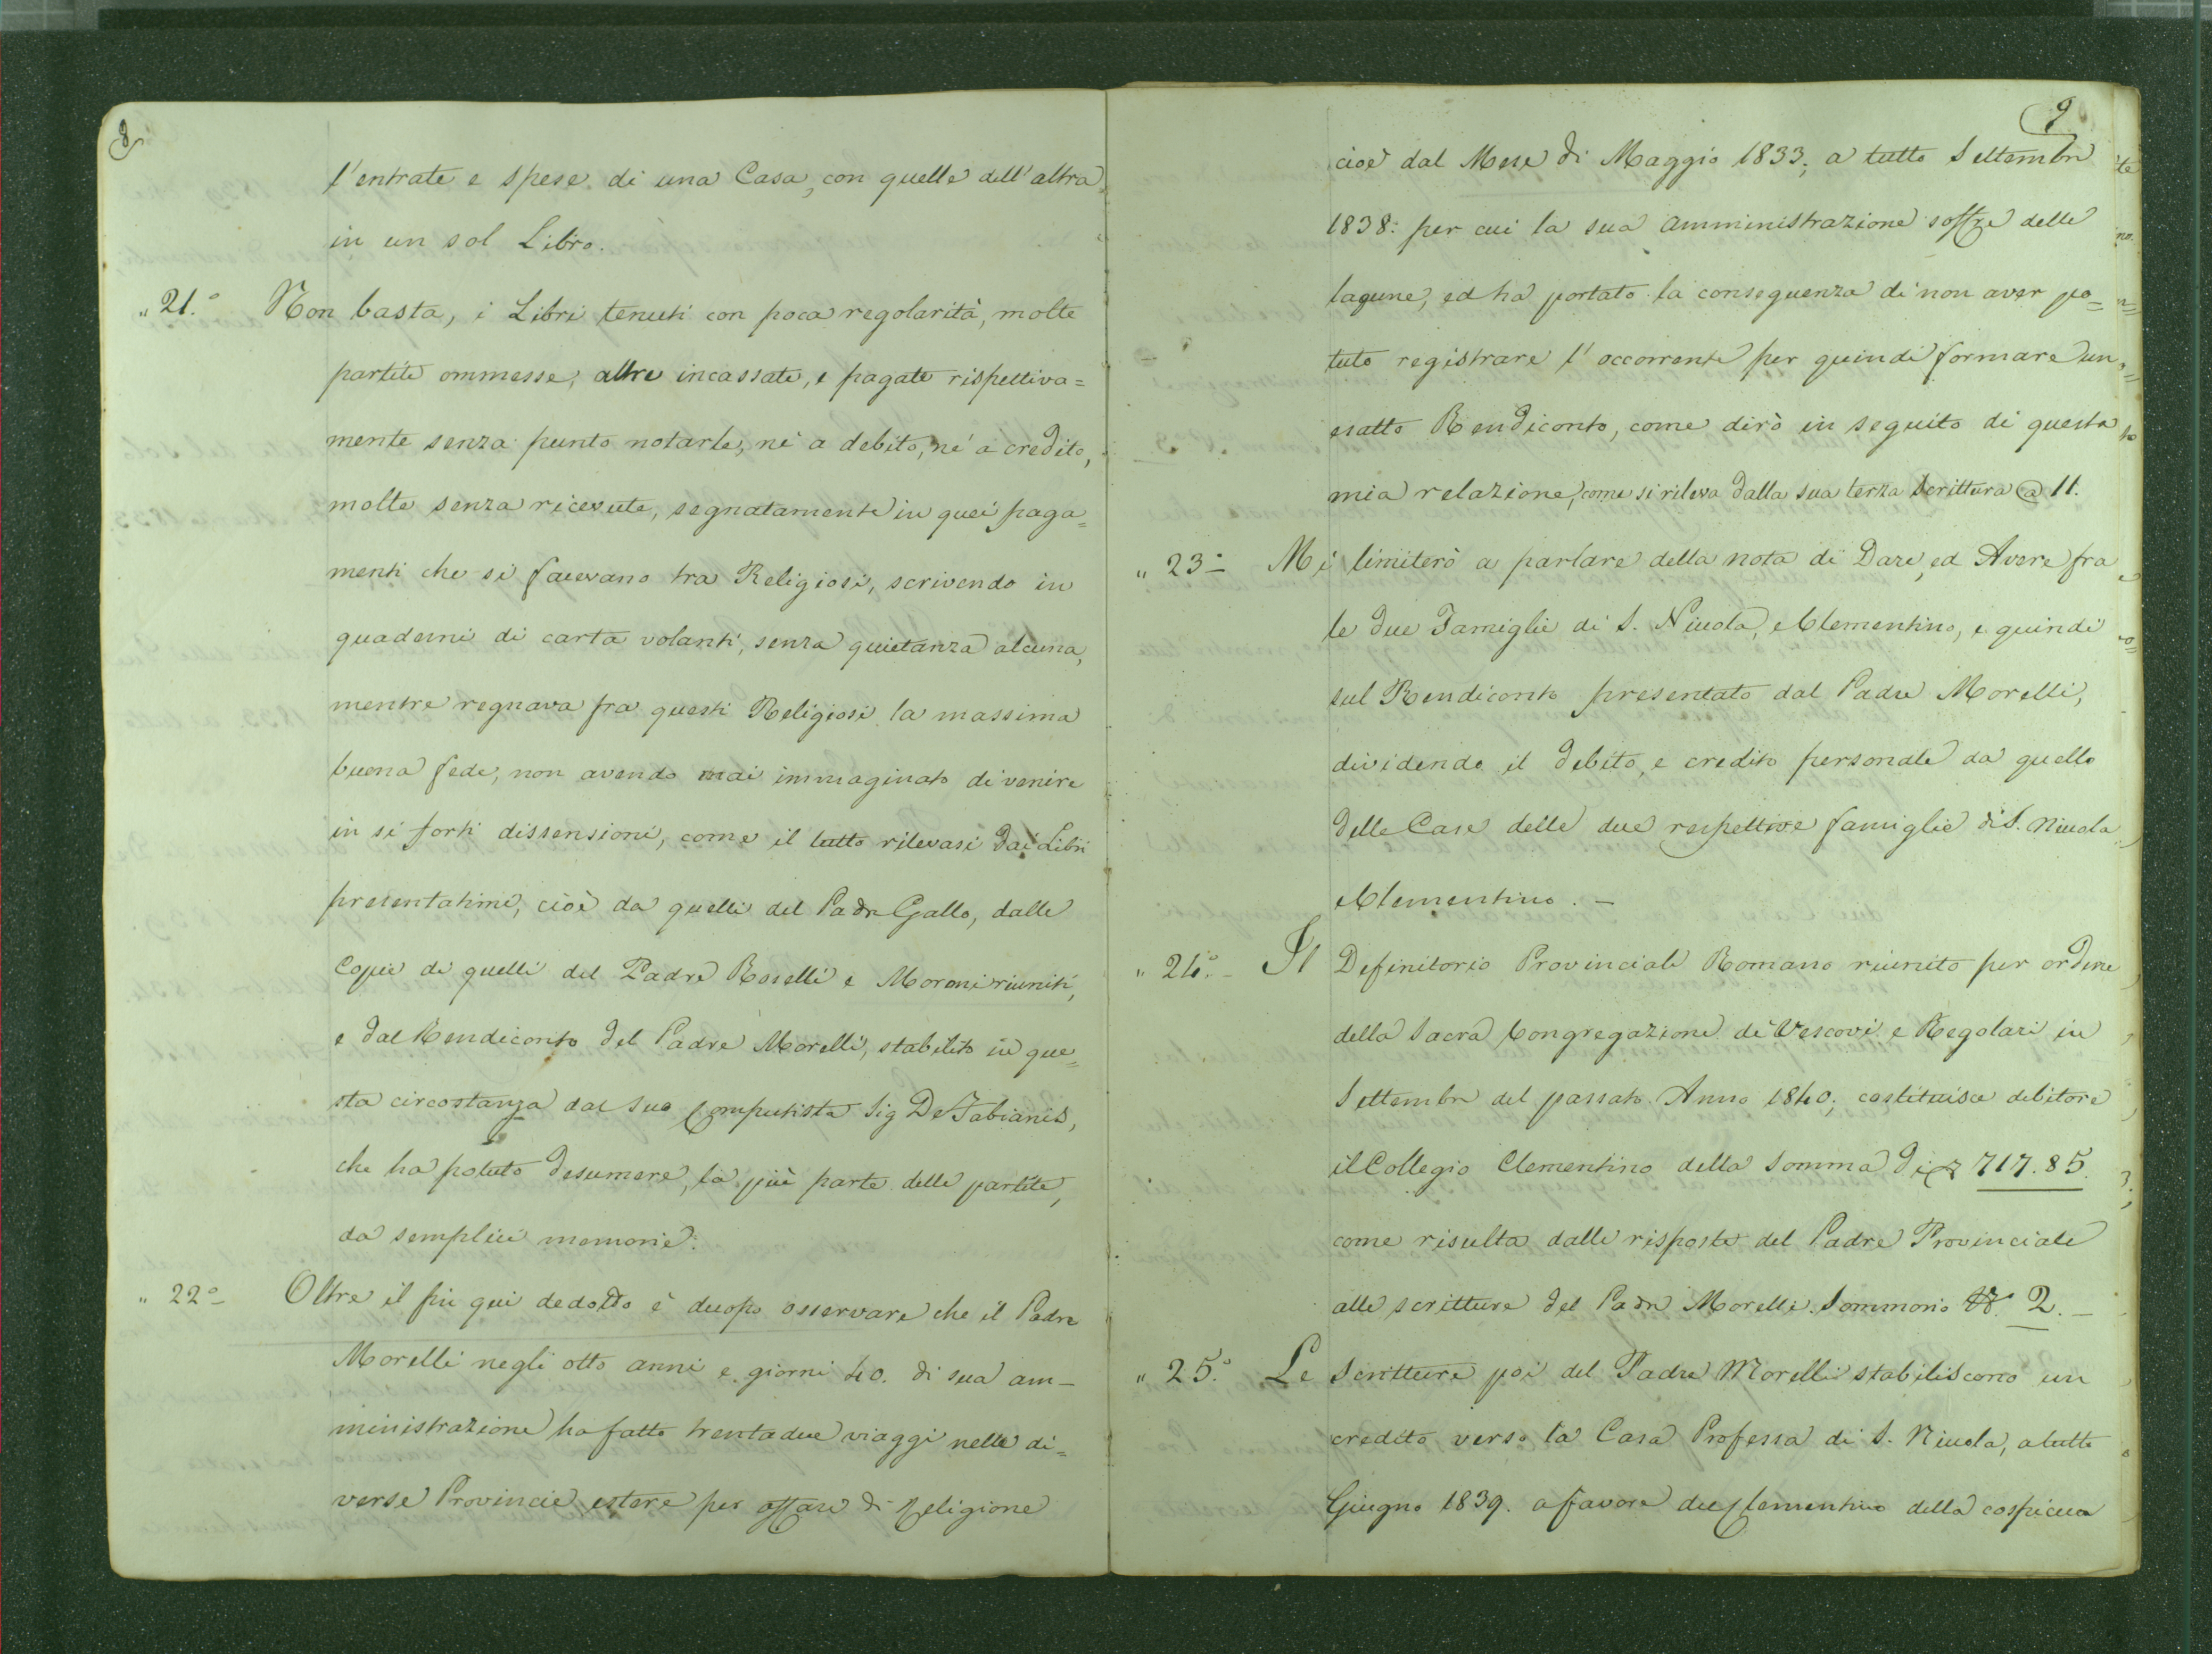 8
l'entrate e spese di una Casa, con quelle dell'altra
in un sol Libro.
„ 21.° Non basta, i Libri tenuti con poca regolarità, molte
partite ommesse, altre incassate, e pagate rispettiva=
mente senza punto notarle, nè a debito, nè a credito,
molte senza ricevute, segnatamente in quei paga=
menti che si facevano tra Religiosi, scrivendo in
quaderni di carta volanti, senza quietanza alcuna,
mentre regnava fra questi Religiosi la massima
buona fede, non avendo mai immaginato di venire
in sì forti dissensioni, come il tutto rilevasi dai Libri
presentatimi, cioè da quelli del Padre Gallo, dalle
Copie di quelli del Padre Roselli e Moroni riuniti,
e dal Rendiconto del Padre Morelli, stabilito in que=
sta circostanza dal suo Computista Sig De Fabianis,
che ha potuto desumere, la più parte delle partite,
da semplici memorie.
„ 22° Oltre il fin qui dedotto è duopo osservare che il Padre
Morelli negli otto anni e giorni 40. di sua am-
ministrazione ha fatto trentadue viaggi nelle di=
verse Provincie estere per affari di Religione
9
cioè dal Mese di Maggio 1833, a tutto Settembre
1838: per cui la sua amministrazione soffre delle
lagune, ed ha portato la conseguenza di non aver po=
tuto registrare l'occorrente per quindi formare un
esatto Rendiconto, come dirò in seguito di questa
mia relazione, come si rileva dalla sua terza Scrittura a 11.
„ 23° Mi limiterò a parlare della nota di Dare, ed Avere fra
le due Famiglie di S. Nicola, e Clementino, e quindi
sul Rendiconto presentato dal Padre Morelli,
dividendo il debito, e credito personale da quello
delle Case delle due respettive famiglie di S. Nicola
e Clementino. –
„ 24.° – Il Definitorio Provinciale Romano riunito per ordine
della Sacra Congregazione de' Vescovi e Regolari in
Settembre del passato Anno 1840, costituisce debitore
il Collegio Clementino della Somma di 717.85.
come risulta dalle risposte del Padre Provinciale
alle scritture del Padre Morelli. Sommario N.° 2. –
„ 25.° Le Scritture poi del Padre Morelli stabiliscono un
credito verso la Casa Professa di S. Nicola, a tutto
Giugno 1839. a favore del Clementino della cospicua